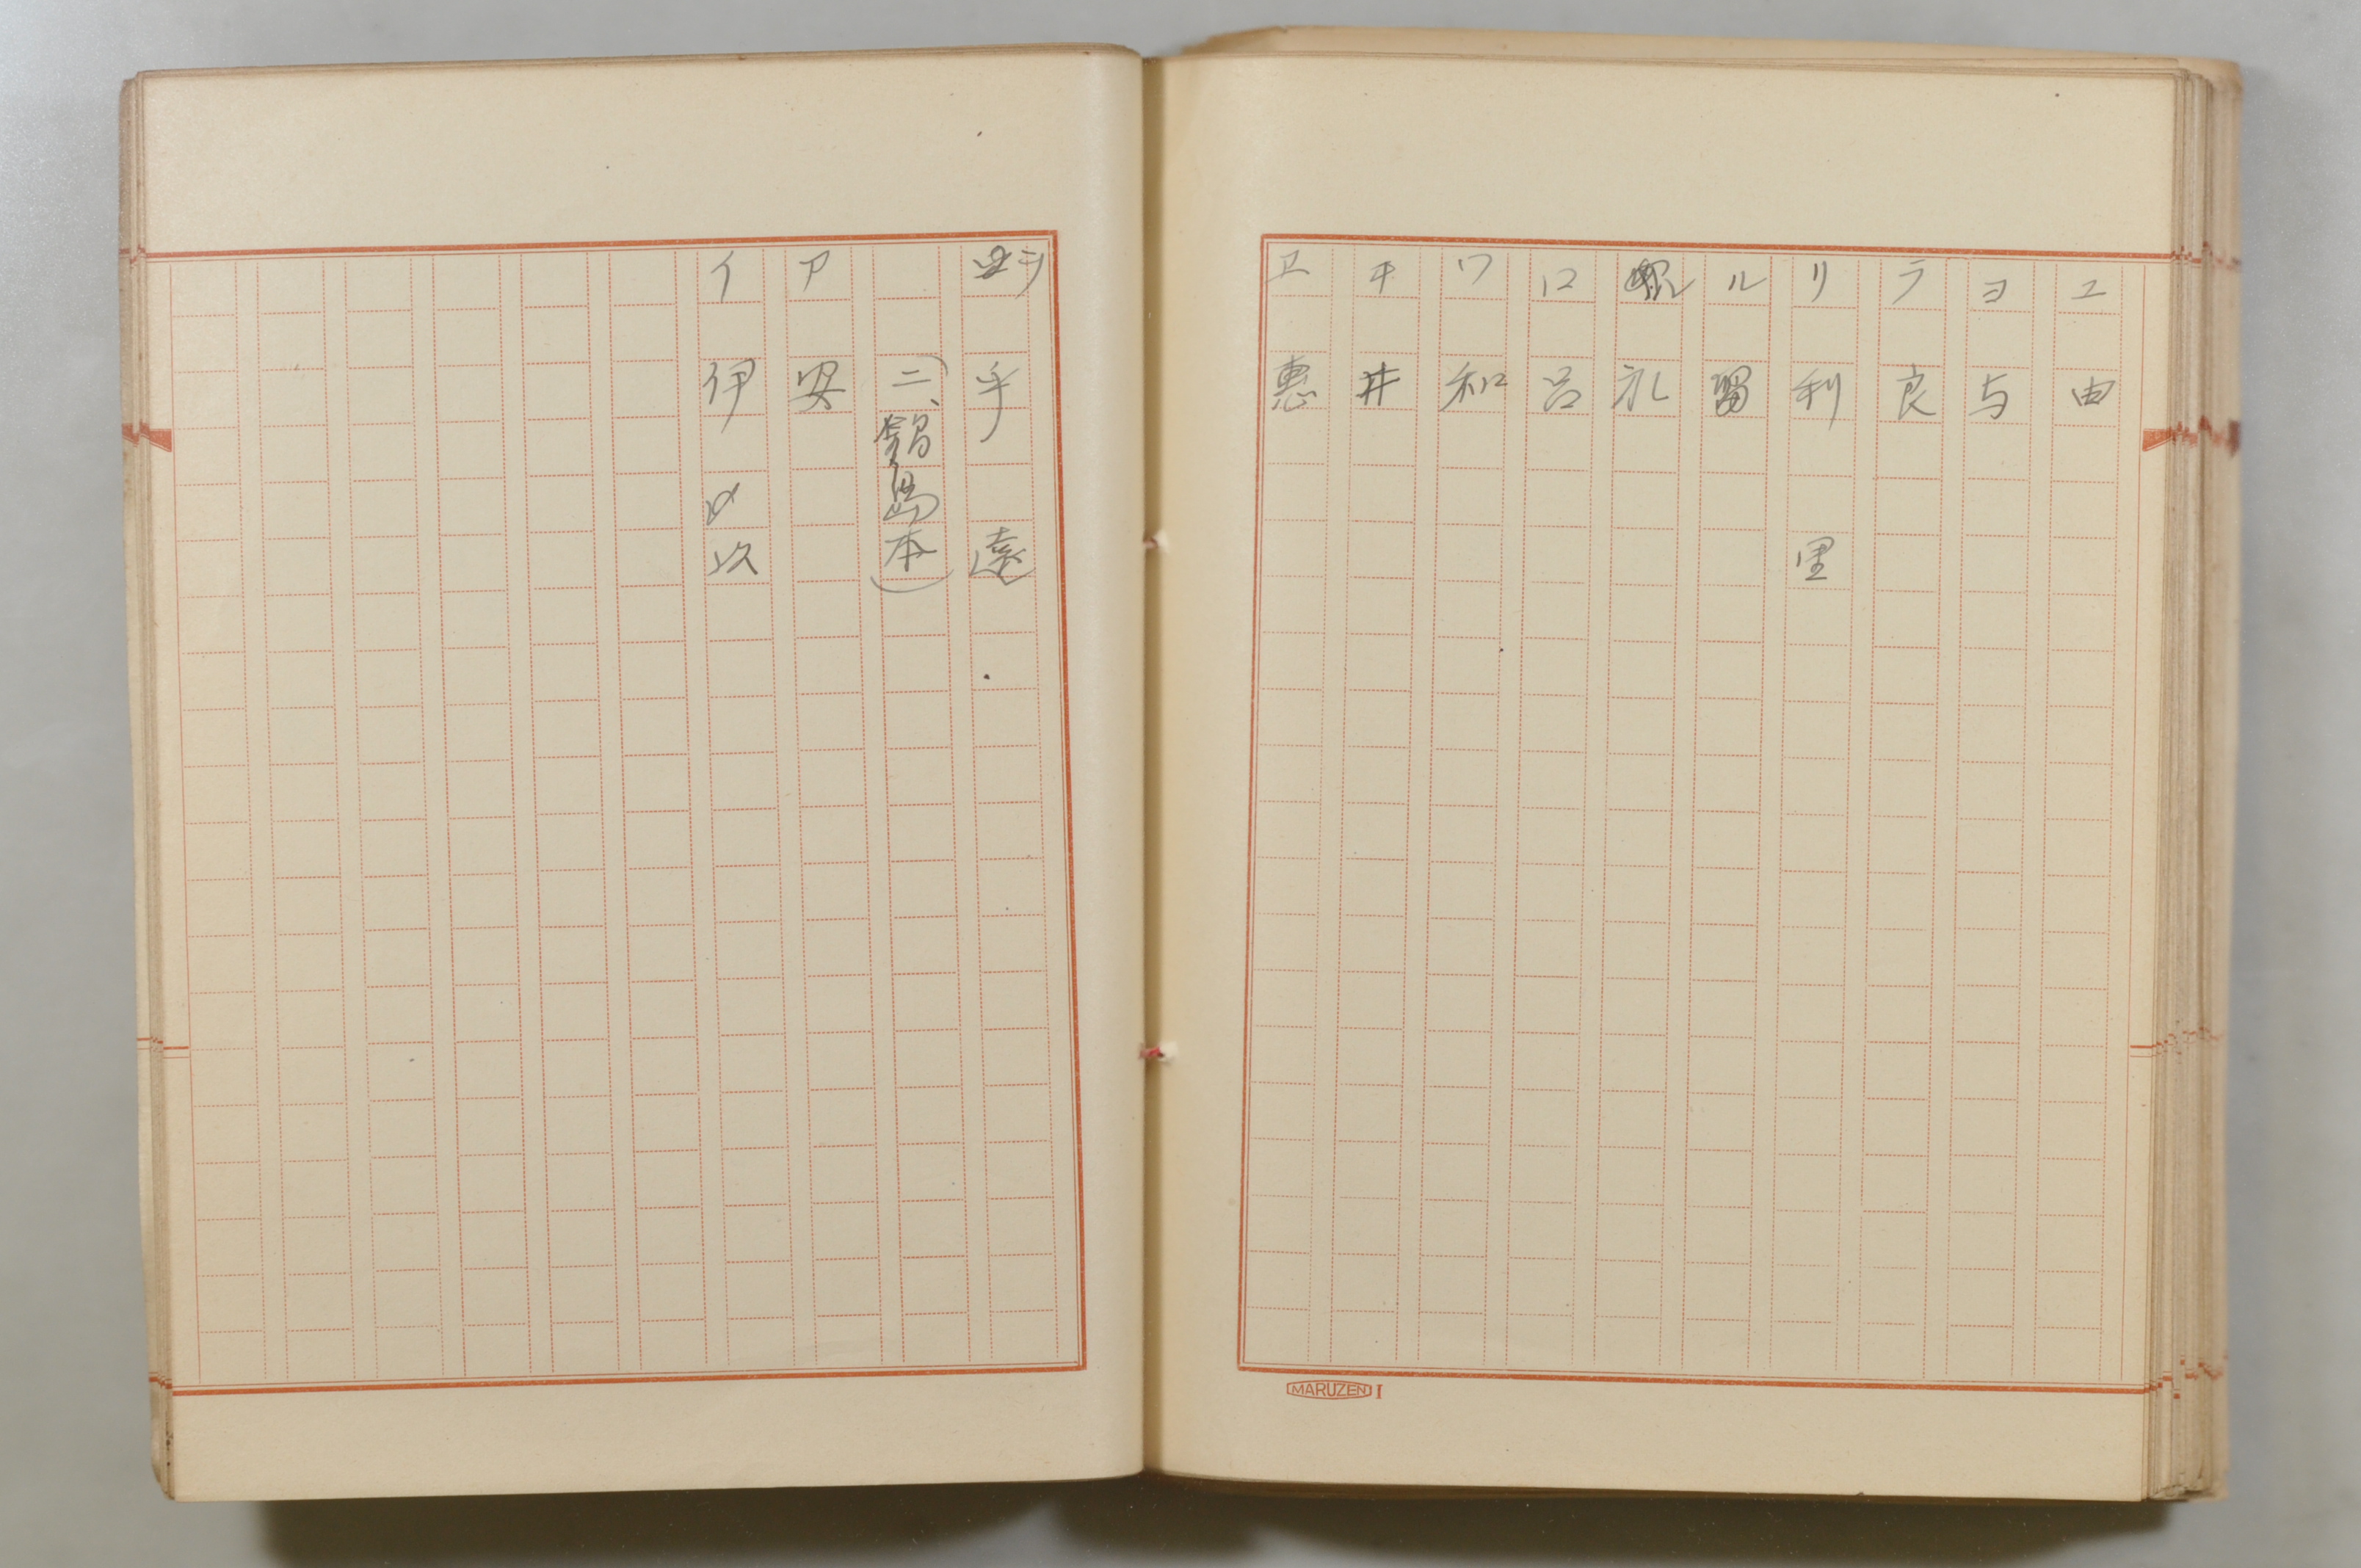 ユ 由
ヨ 与
ラ 良
リ 利 里
ル 留
レ 礼
ロ 呂
ワ 和
ヰ 井
ヱ 恵
MARUZEN I
ヲ 乎 遠
(二、鍋島本)
ア 安
イ 伊 以